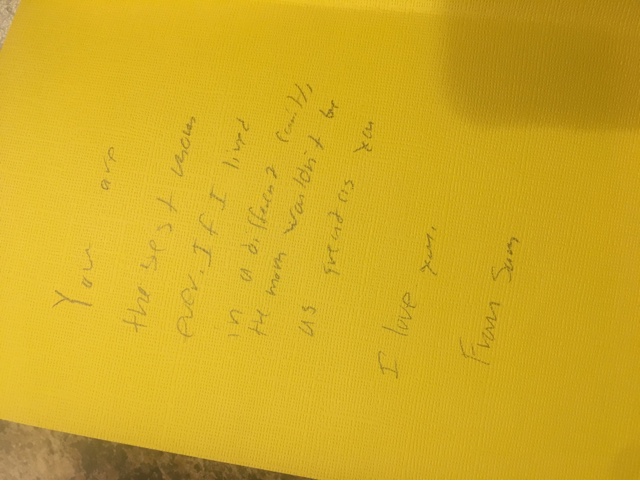 You are
the best mom
ever. If I lived
in a different family,
the mom wouldn't be
as great as you
I love you.
From Sam